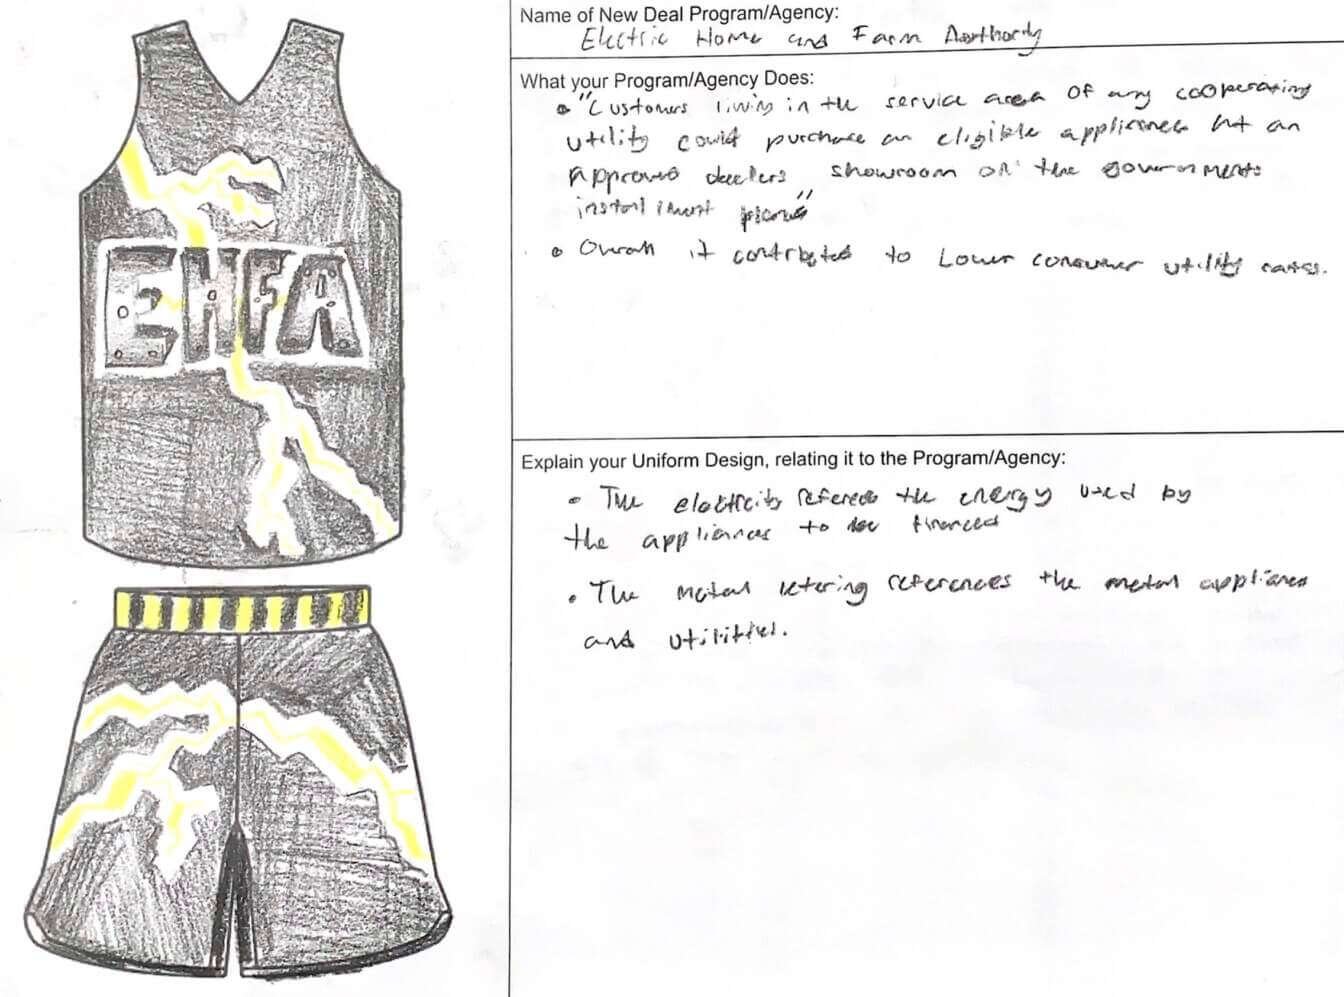 EHFA
Name of New Deal Program/Agency:
Electric Home and Farm Aorthordy
What your Program/Agency Does:
• "Customers living in the service area of any cooperating
utility could purchase an eligible appliances at an
approved dealers showroom on the governments
installment plans"
• Overall it contributed to Lower consumer utility rates.
Explain your Uniform Design, relating it to the Program/Agency:
• The electricity referces the energy used by
the appliances to be financed
• The metal letering references the metal appliances
and utilities.